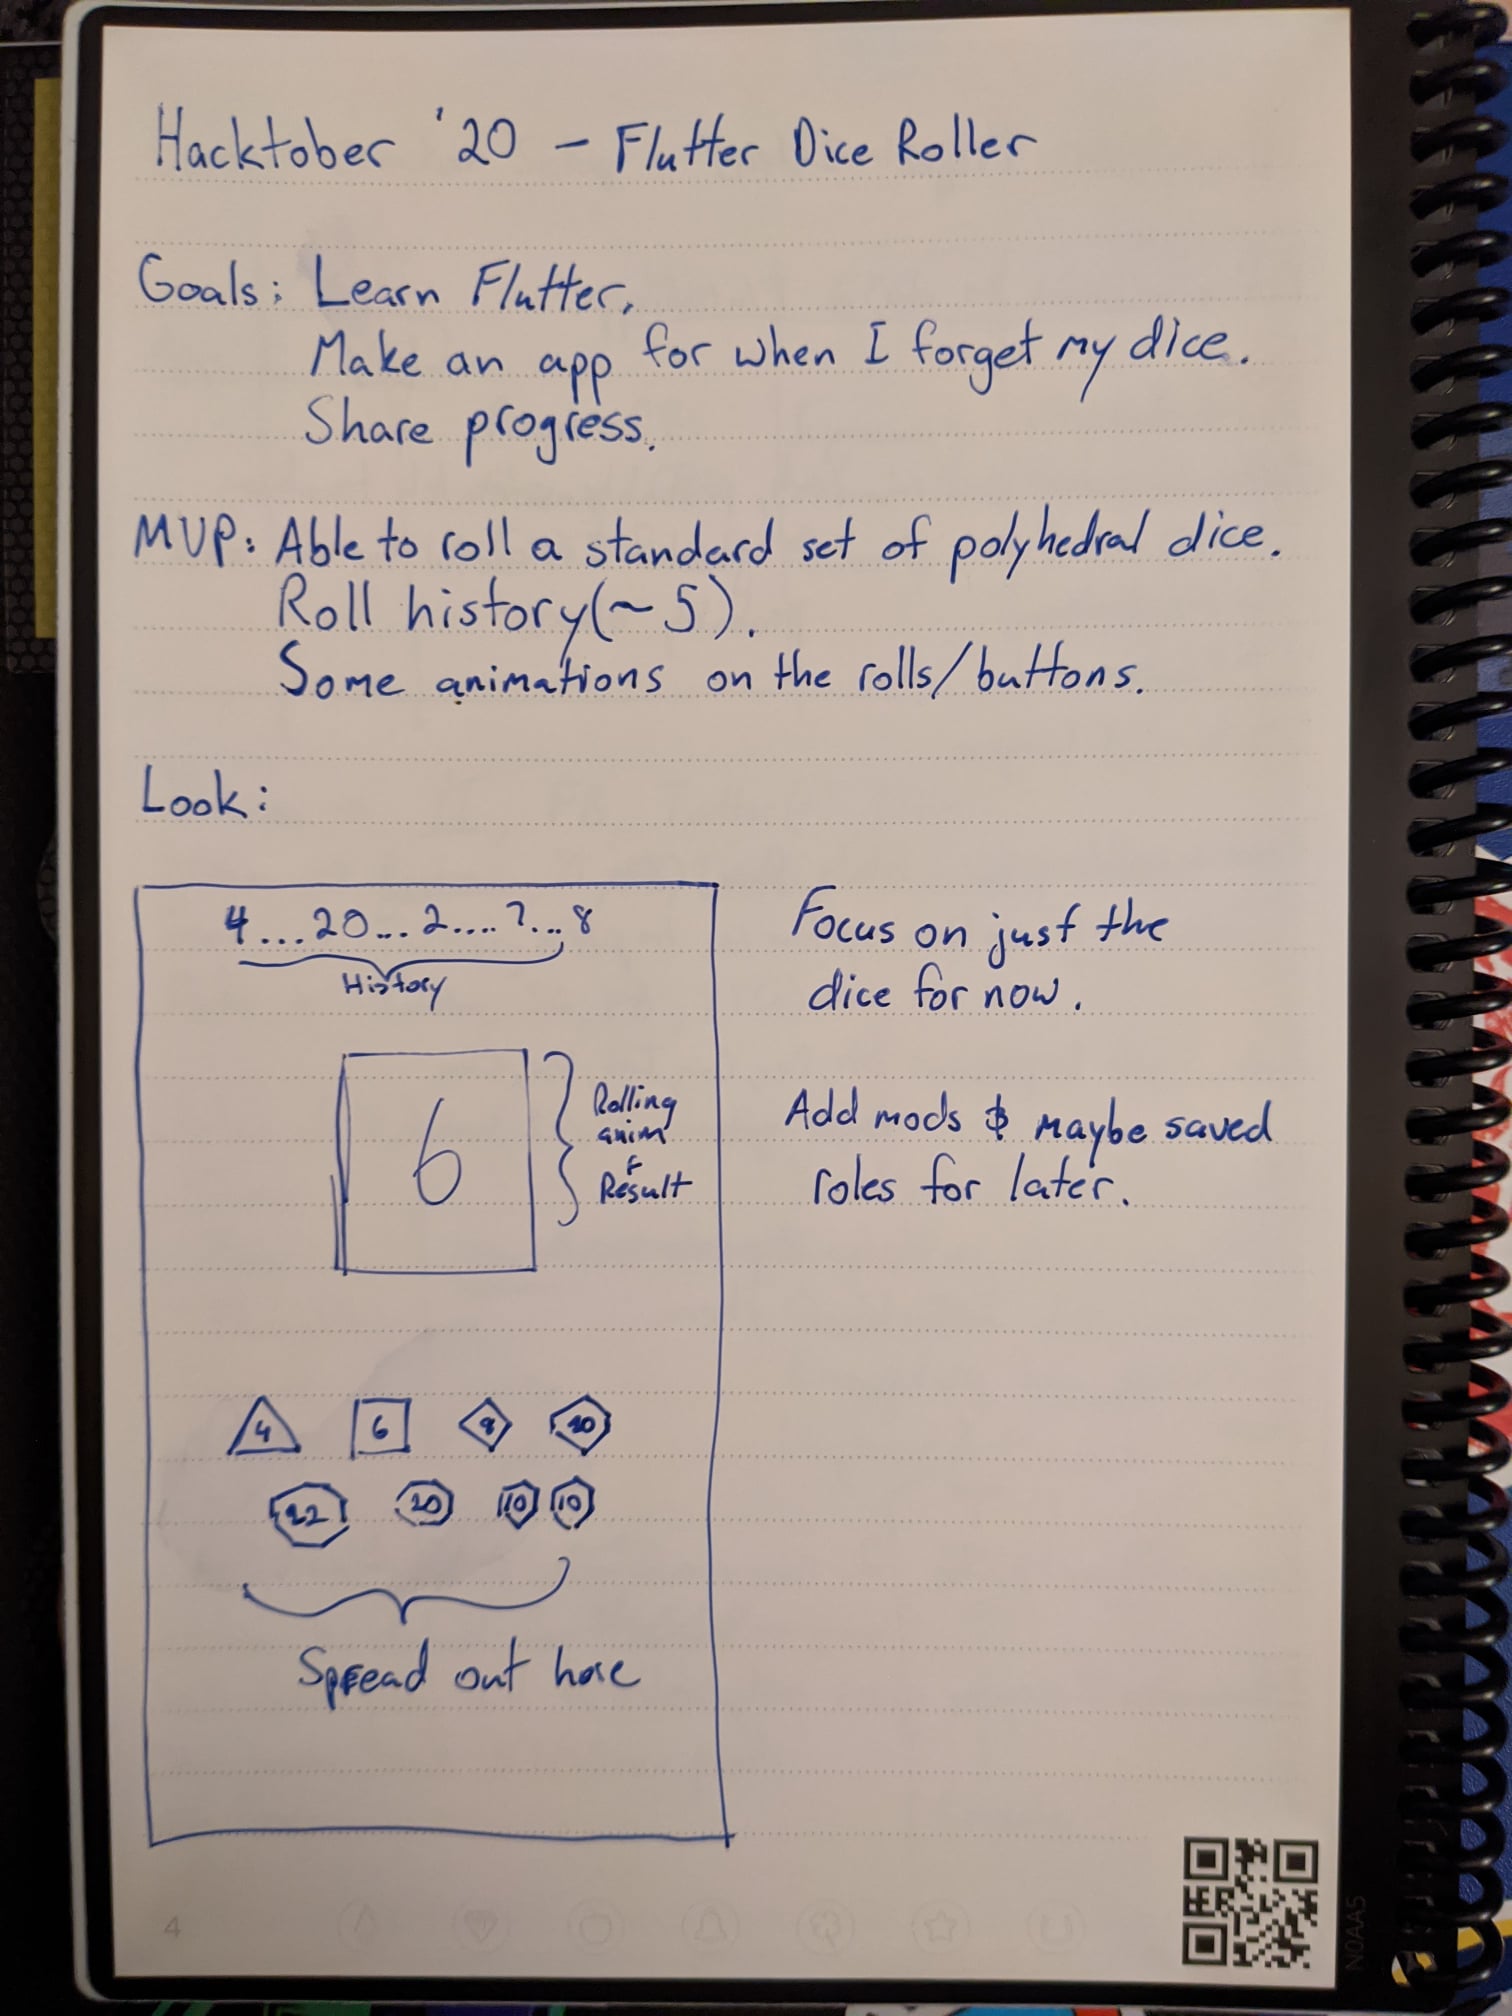 Hacktober '20 - Flutter Dice Roller
Goals: Learn Flutter.
Make an app for when I forget my dice.
Share progress.
MVP: Able to roll a standard set of polyhedral dice.
Roll history(~5).
Some animations on the rolls/buttons.
Look:
4...20...2....7...8
History
6
Rolling
anim
+
Result
Focus on just the
dice for now.
Add mods & maybe saved
roles for later.
4 6 8 20
12 20 10 10
Spread out here
4
NOAA5